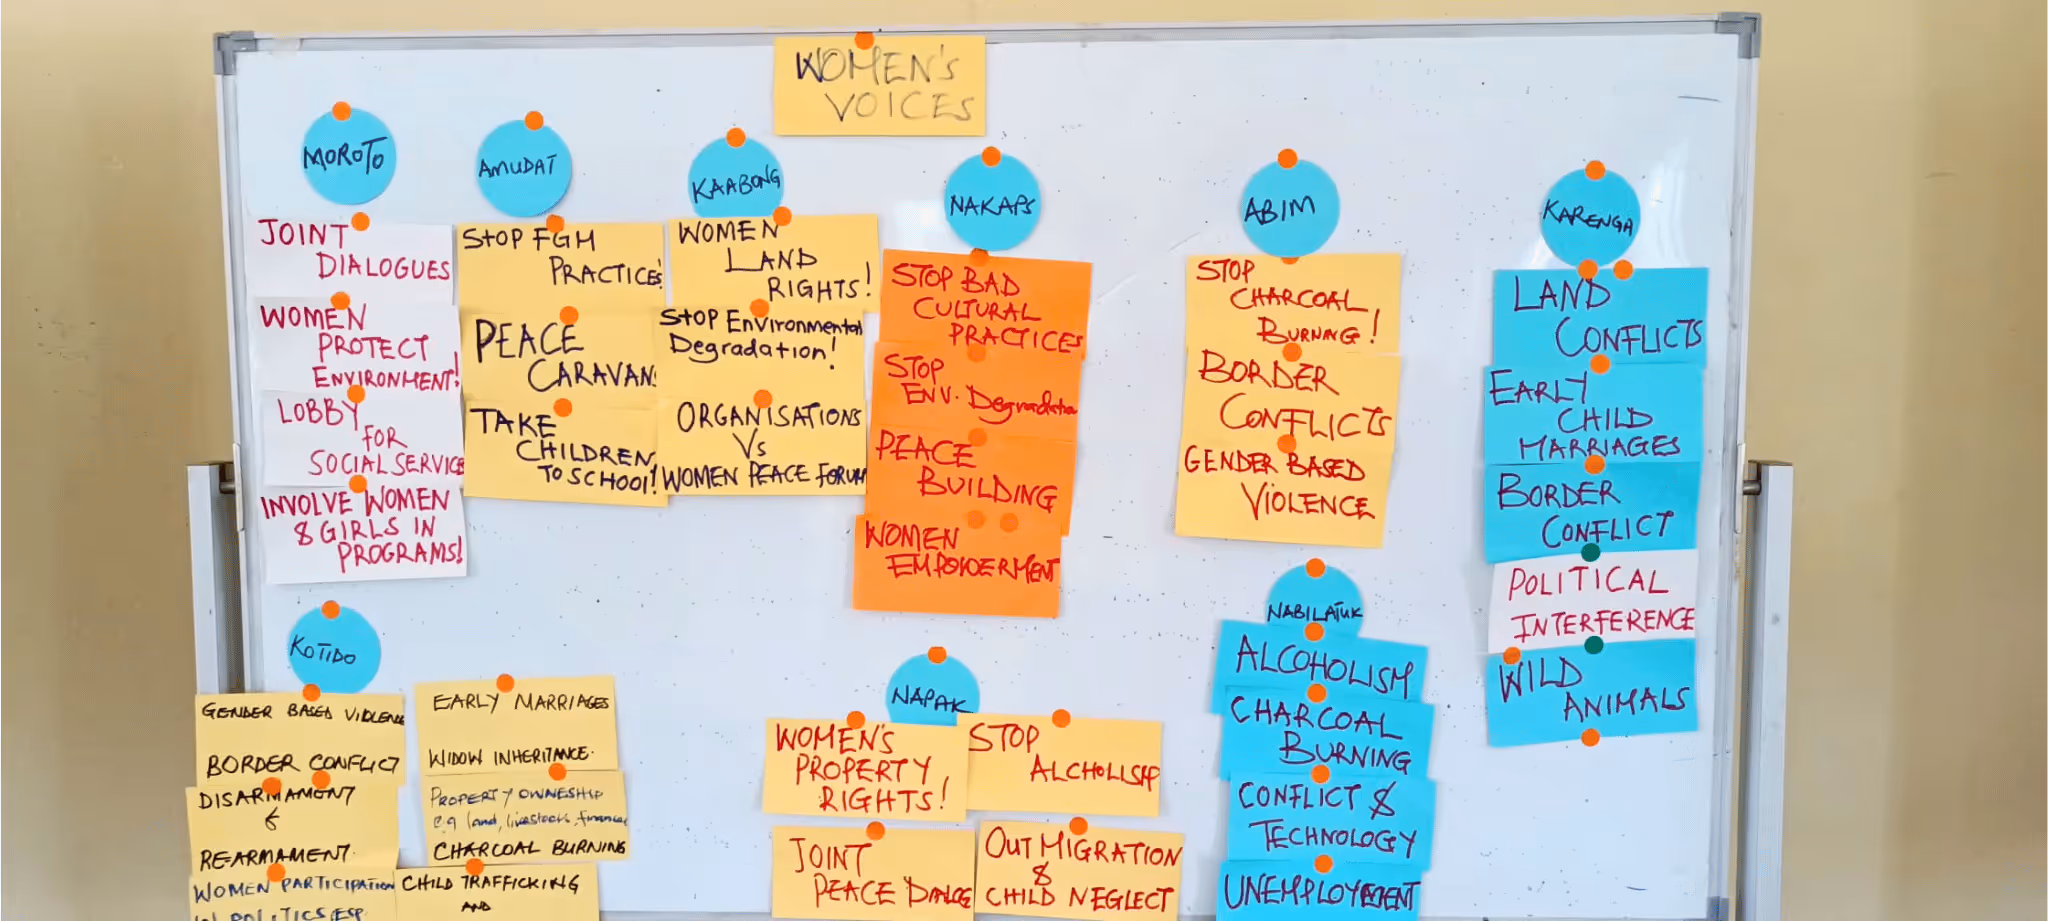 WOMEN'S
VOICES
MOROTO
JOINT
DIALOGUES
WOMEN
PROTECT
ENVIRONMENT!
LOBBY
FOR
SOCIAL SERVICE
INVOLVE WOMEN
& GIRLS IN
PROGRAMS!
AMUDAT
STOP FGM
PRACTICES
PEACE
CARAVANS
TAKE
CHILDREN
TO SCHOOL!
KAABONG
WOMEN
LAND
RIGHTS!
STOP Environmental
Degradation!
ORGANISATIONS
Vs
WOMEN PEACE FORUM
NAKAPS
STOP BAD
CULTURAL
PRACTICES
STOP
ENV. Degradation
PEACE
BUILDING
WOMEN
EMPOWERMENT
ABIM
STOP
CHARCOAL
BURNING!
BORDER
CONFLICTS
GENDER BASED
VIOLENCE
KARENGA
LAND
CONFLICTS
EARLY
CHILD
MARRIAGES
BORDER
CONFLICT
POLITICAL
INTERFERENCE
WILD
ANIMALS
KOTIDO
GENDER BASED VIOLENCE
BORDER CONFLICT
DISARMAMENT
&
REARMAMENT.
WOMEN PARTICIPATION
IN POLITICS ESP.
EARLY MARRIAGES
WIDOW INHERITANCE.
PROPERTY OWNESHIP
e.g land, livestock, finances
CHARCOAL BURNING
CHILD TRAFFICKING
AND
NAPAK
WOMEN'S
PROPERTY
RIGHTS!
STOP
ALCHOLISM
JOINT
PEACE DIALOGE
OUT MIGRATION
&
CHILD NEGLECT
NABILATUK
ALCOHOLISM
CHARCOAL
BURNING
CONFLICT &
TECHNOLOGY
UNEMPLOYEMENT